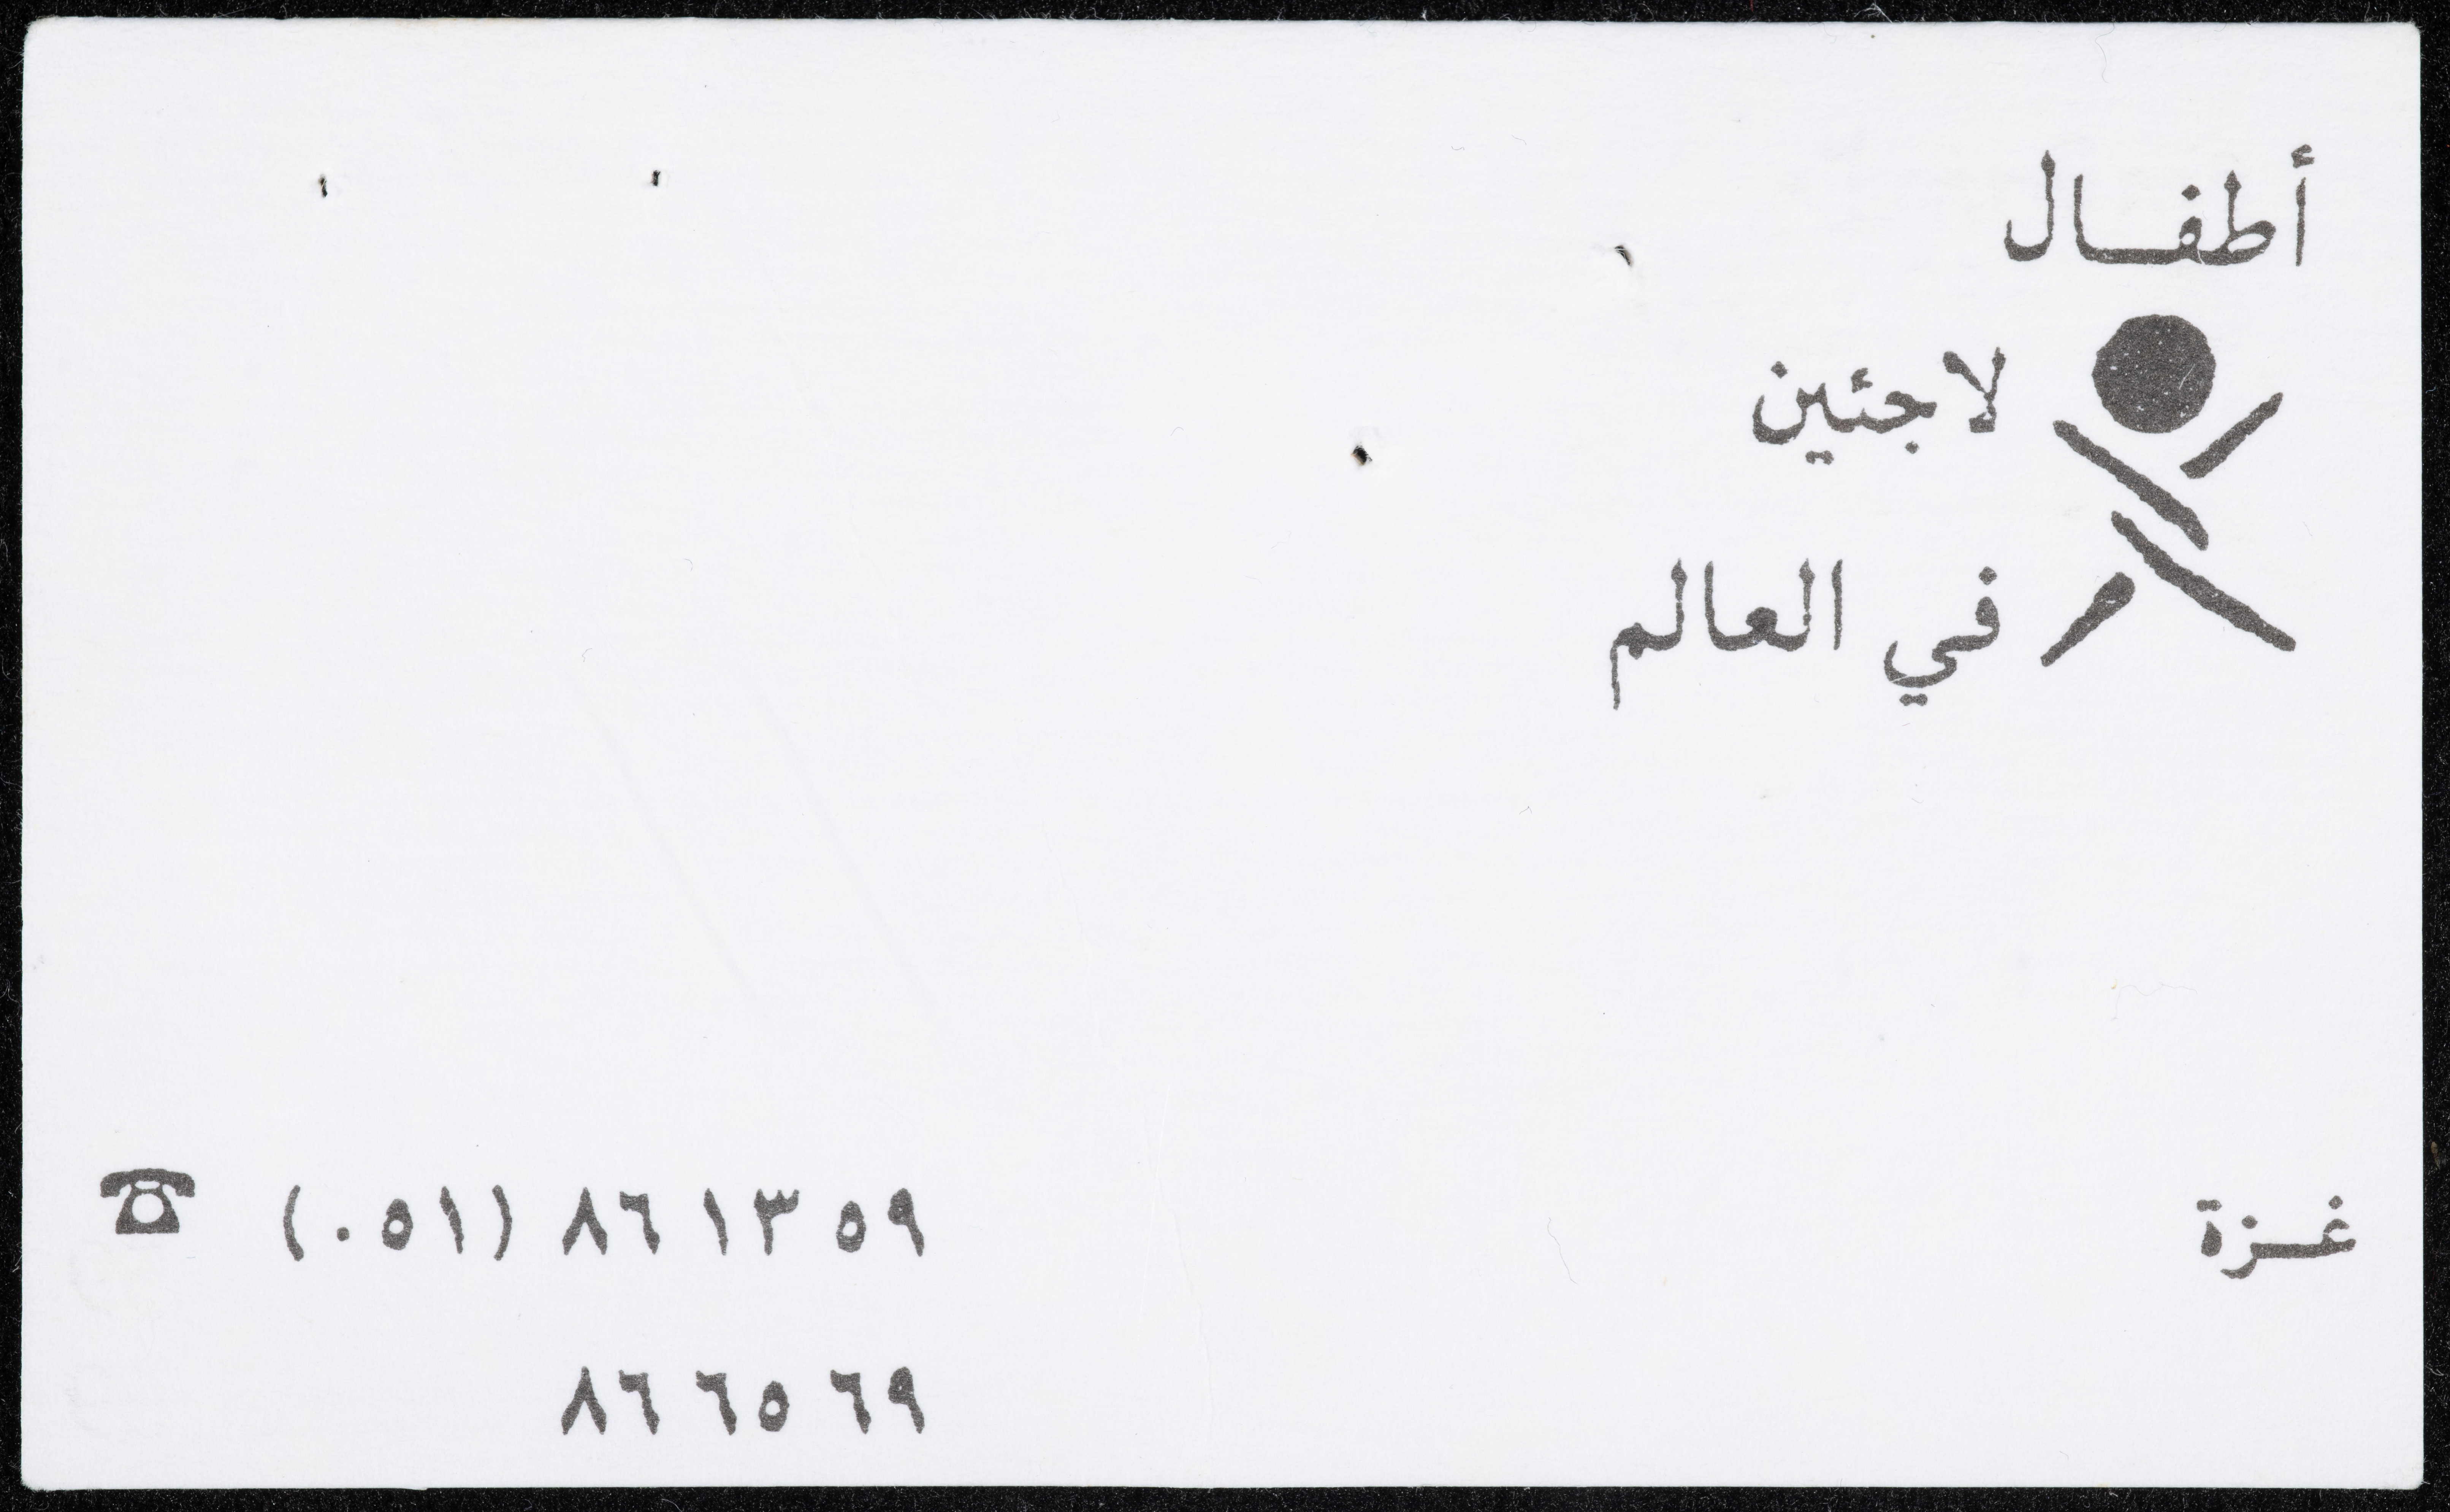 أطفال
لاجئين
في العالم
غزة
☎ (٠٥١) ٨٦ ١٣ ٥٩
٨٦ ٦٥ ٦٩